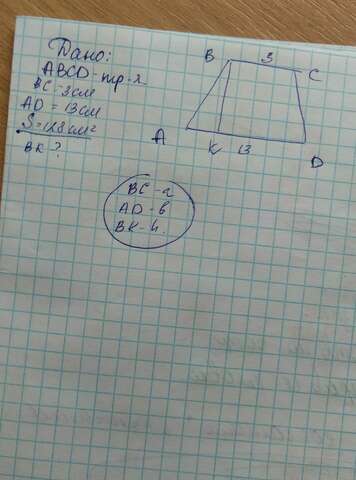 Дано:
ABCD-тр-я.
BC-3см
AD = 13см
S=128см²
BK ?
B 3 C
A K 13 D
BC-a
AD-b
BK-h.